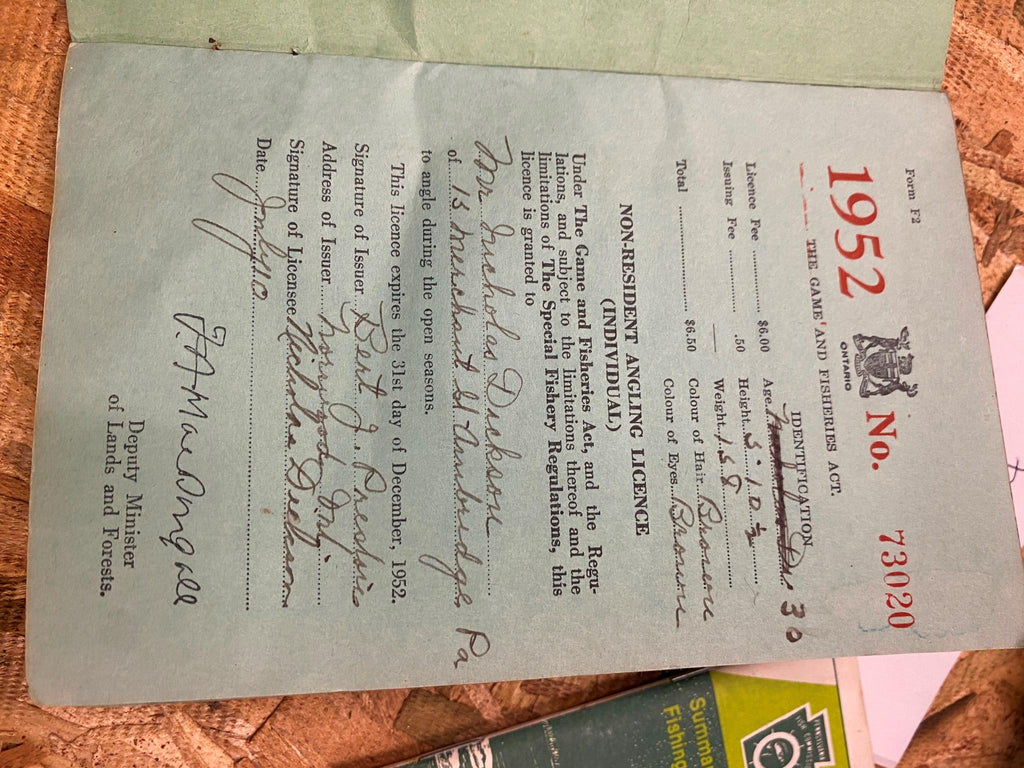 Form F2
1952
ONTARIO
No. 73020
THE GAME AND FISHERIES ACT.
IDENTIFICATION
Licence Fee ........ $6.00
Age 36
Issuing Fee ........ .50
Height 5.10 ½
Weight 158
Total ........ $6.50
Colour of Hair Brown
Colour of Eyes Brown
NON-RESIDENT ANGLING LICENCE
(INDIVIDUAL)
Under The Game and Fisheries Act, and the Regu-
lations, and subject to the limitations thereof and the
limitations of The Special Fishery Regulations, this
licence is granted to
Mr Nicholes Dickson
of 13 Merchant St Ambridge, Pa
to angle during the open seasons.
This licence expires the 31st day of December, 1952.
Signature of Issuer Bert J.
Address of Issuer Ont.
Signature of Licensee Nicholas Dickson
Date July 10
Deputy Minister
of Lands and Forests.
PENNSYLVANIA
FISH COMMISSION
Summa
Fishing